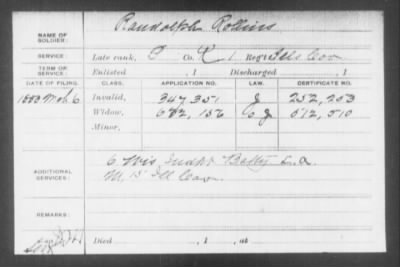 NAME OF SOLDIER: Randolph Rollins
SERVICE: Late rank, P Co. K 1 Reg't Ills Cav
TERM OF SERVICE: Enlisted , 1 Discharged , 1
DATE OF FILING. CLASS. APPLICATION NO. LAW. CERTIFICATE NO.
1883 Mch 6 Invalid, 347,351 J 252,253
Widow, 682,156 512,510
Minor,
ADDITIONAL SERVICES: 6 Wis Indpt Batty L.A.
M. 15 Ill Cav.
REMARKS:
Died , 1 , at